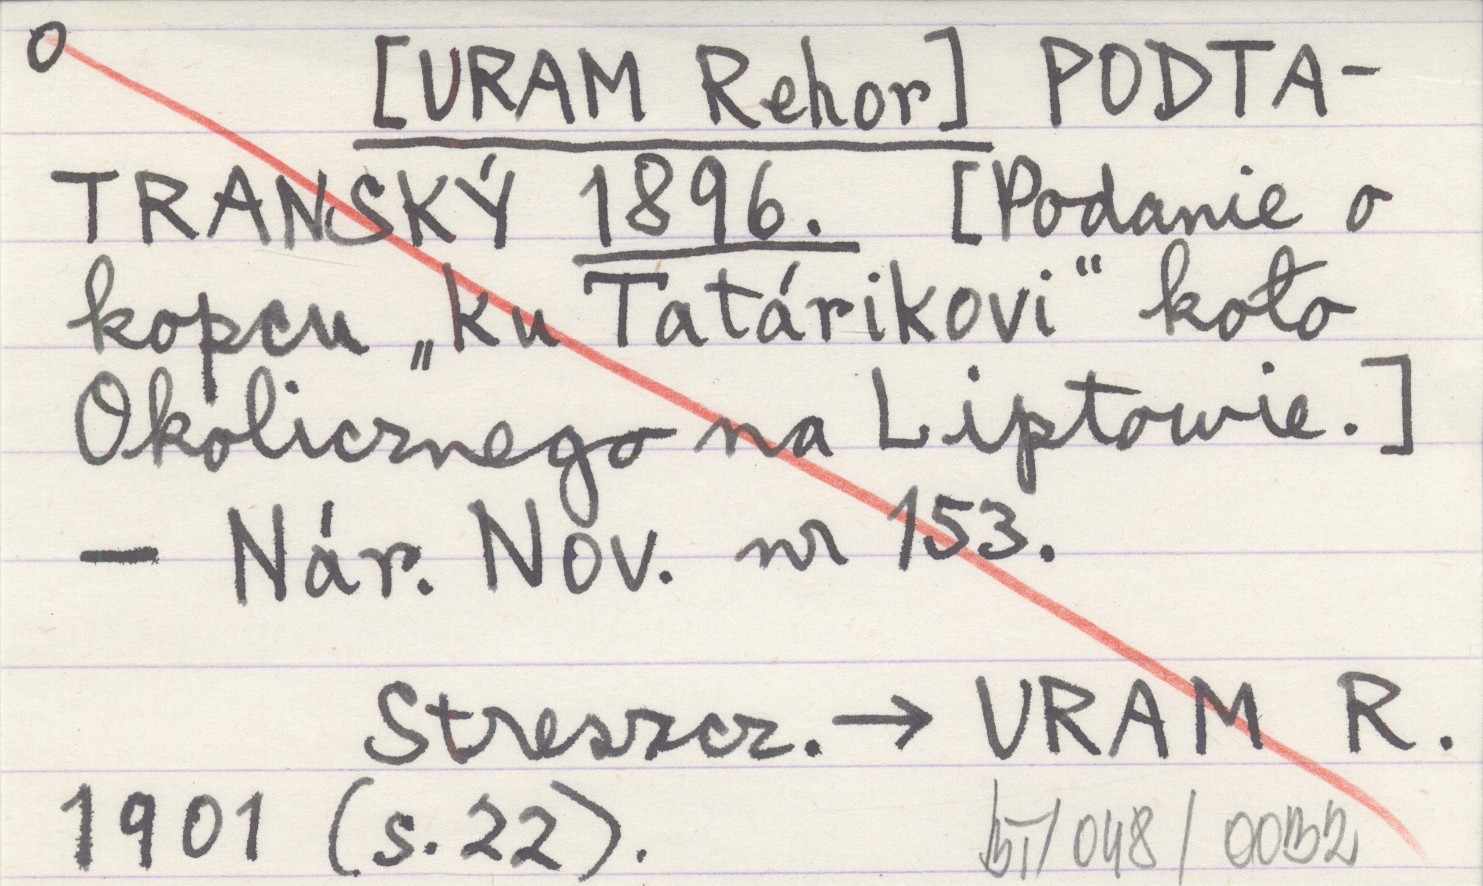 [URAM Rehor] PODTA-
TRANSKÝ 1896. [Podanie o
kopcu „ku Tatárikovi“ koło
Okolicznego na Liptowie.]
— Nár. Nov. nr 153.
Streszcz. → URAM R.
1901 (s. 22).
BT/048/0032